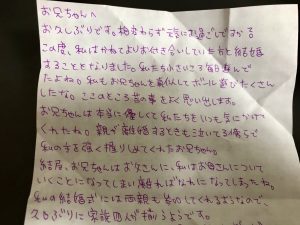 お兄ちゃんへ
お久しぶりです。相変わらず元気にお過ごしですか？
この度、私はかねてよりお付き合いしていた方と結婚
することとなりました。私たち小さいころ毎日遊んで
たよね。私もお兄ちゃんを真似してボール遊びたくさん
したな。ここのところ昔の事をよく思い出します。
お兄ちゃんは本当に優しくて私たちをいつも気にかけて
くれたね。親が離婚するときも泣いてる傍らで
私の手を強く握りしめてくれたお兄ちゃん。
結局、お兄ちゃんはお父さんに、私はお母さんについて
いくことになってしまい離ればなれになってしまったね。
私の結婚式には両親も参加してくれるようなので、
久しぶりに家族四人が揃うようです。